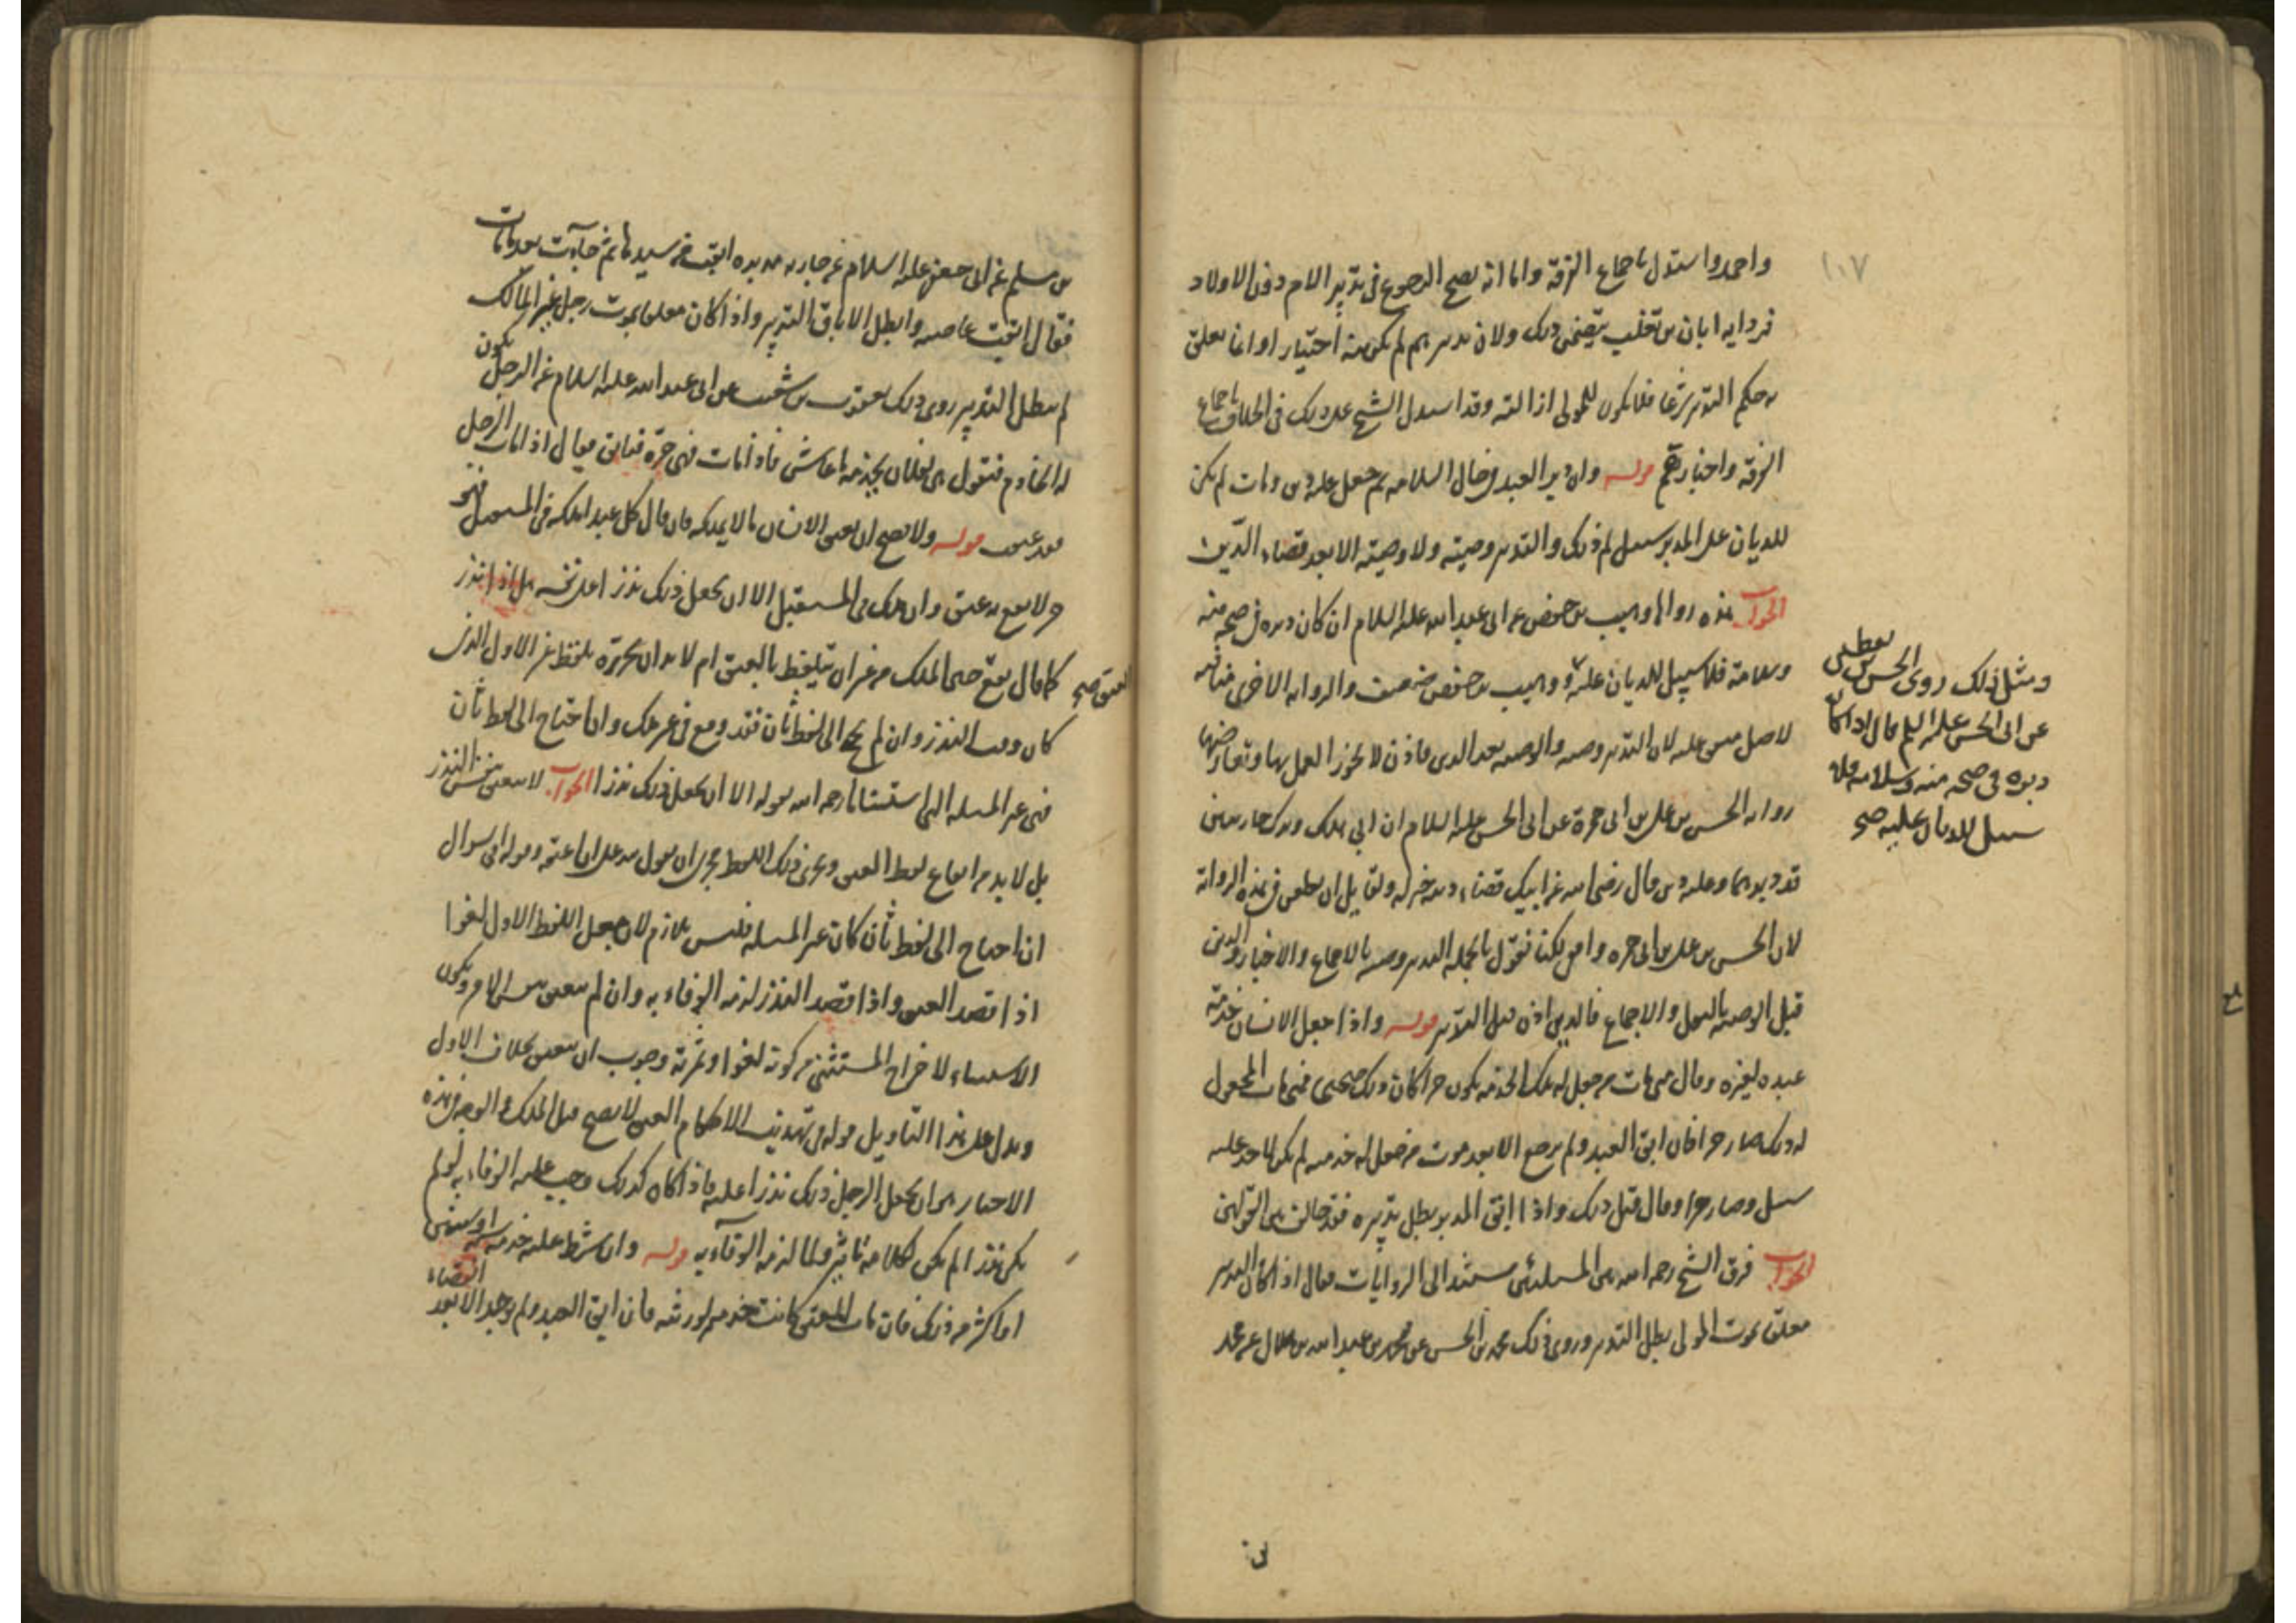 ١٠٧
واحمد واستدل باجماع الفرقة واما انه يصح الرجوع فى تدبير الام دون الاولاد
فرواية ابان بن تغلب يتضمن ذلك ولان تدبيرهم لم يكن منه اختيار او انما تعلق
بهم حكم التدبير شرعا فلا يكون للمولى ازالته وقد استدل الشيخ على ذلك فى الخلاف باجماع
الفرقة واخبارهم قوله وان دبر العبد فى حال السلامة ثم جعل عليه دين ومات لم يكن
للديان على المدبر سبيل لم ذلك والتدبير وصيته ولا وصيته الا بعد قضاء الدين
الجواب هذه رواها وهيب بن حفص عن ابى عبد الله عليه السلام ان كان دبره فى صحة منه
وسلامة فلا سبيل للديان عليه و وهيب بن حفص ضعيف والرواية الاخرى منافية
لاصل متفق عليه لان التدبير وصية والوصية بعد الدين فاذن لا يجوز العمل بها وتعارضها
رواية الحسن بن على بن ابى حمزة عن ابى الحسن عليه السلام ان ابى هلك وترك جاريتين
قد دبرهما وعليه دين قال رضى الله عن ابيك قضاء دينه خير له ولقايل ان يطعن فى هذه الرواية
لان الحسن بن على بن ابى حمزه واقفى لكنا نقول بالجملة التدبير وصية بالاجماع والاخبار والدين
قبل الوصية بالنص والاجماع فالدين اذن قبل التدبير قوله واذا جعل الانسان خدمة
عبده لغيره وقال متى مات من جعل له تلك الخدمة يكون حرا كان ذلك صحيحا فمتى مات المجعول
له ذلك صار حرا فان ابق العبد ولم يرجع الا بعد موت من جعل له خدمته لم يكن لاحد عليه
سبيل وصار حرا وقال قبل ذلك واذا ابق المدبر بطل تدبيره فقد خالف بين القولين
الجواب فرق الشيخ رحمه الله بين المسئلتين مستندا الى الروايات فقال اذا كان التدبير
معلق بموت المولى بطل التدبير وروى ذلك محمد بن الحسن عن محمد بن عبد الله بن هلال عن محمد
ومثل ذلك روى الحسن بن يقطين
عن ابى الحسن عليه السلم قال اذا كان
دبره فى صحة منه وسلامة فلا
سبيل للديان عليه صح
بن مسلم عن ابى جعفر عليه السلام عن جارية مدبره ابقت من سيدها ثم جاءت بعد ما مات
فقال ابقت عاصية وابطل الاباق التدبير واذا كان معلقا بموت رجل غير المالك
لم يبطل التدبير روى ذلك يعقوب بن شعيب عن ابى عبد الله عليه السلام عن الرجل يكون
له الخادم فتقول هى لفلان يخدمه ما عاش فاذا مات فهى حرة فتابق فقال اذا مات الرجل
فقد عتقت قوله ولا يصح ان يعتق الانسان ما لا يملكه فان قال كل عبد املكه فى المستقبل فهو
حر لا يقع به عتق وان ملك فى المستقبل الا ان يجعل ذلك نذرا على نفسه هل اذا نذر
العتق صح
كما قال يقع حين الملك من غير ان يتلفظ بالعتق ام لا بد ان يحرره بلفظ غير الاول الذى
كان وقت النذر وان لم يحتج الى لفظ ثان فقد وقع فى غير ملك وان احتاج الى لفظ ثان
فهى غير المسئلة التى استثناها رحمه الله بقوله الا ان يجعل ذلك نذرا الجواب لا ينعتق بنفس النذر
بل لا بد من ايقاع لفظ العتق ويجرى ذلك اللفظ مجرى ان يقول لله على ان اعتقه وقوله فى سوال
ان احتاج الى لفظ ثان كانت غير المسئلة فليس بلازم لانه يجعل اللفظ الاول لغوا
اذا قصد العتق واذا قصد النذر لزمه الوفاء به وان لم ينعتق بنفس الكلام ويكون
الاستثناء لاخراج المستثنى من كونه لغوا وثمرته وجوب ان يعتق بخلاف الاول
ويدل على هذا التاويل قوله فى تهذيب الاحكام العتق لا يصح قبل الملك والوجه فى هذه
الاخبار هو ان يجعل الرجل ذلك نذرا عليه فاذا كان كذلك وجب عليه الوفاء به لو لم
يكن نذرا لم يكن لكلامه تاثير ولما لزمه الوفاء به قوله وان شرط عليه خدمة سنة او سنتين
او اكثر من ذلك فان مات المعتق كانت خدمته لورثته فان ابق العبد ولم يوجد الا بعد انقضاء